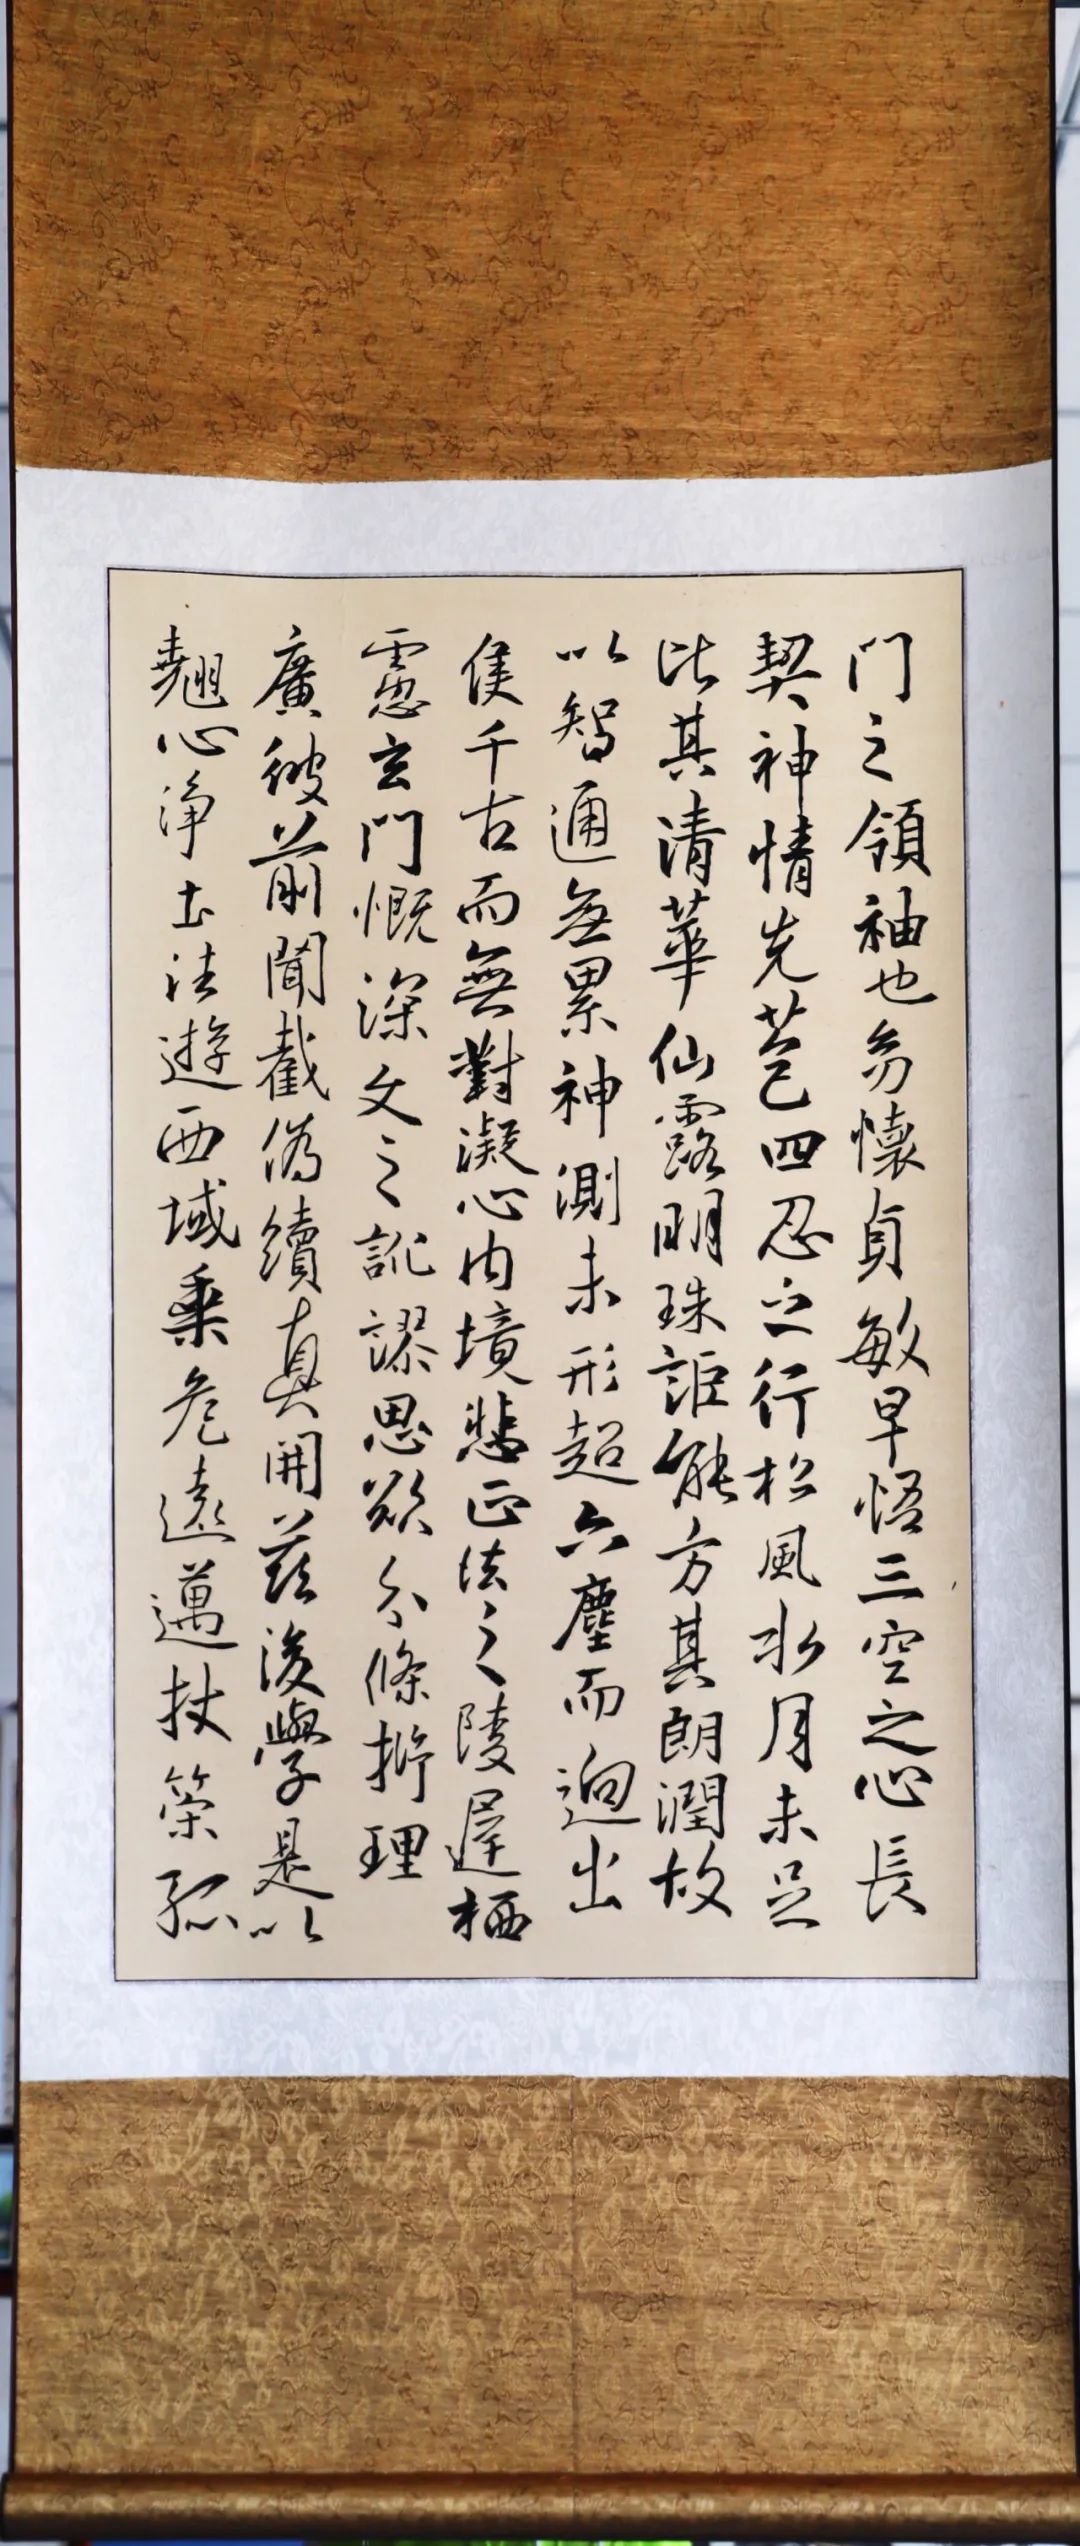 門之領袖也幼懷貞敏早悟三空之心長
契神情先苞四忍之行松風水月未足
比其清華仙露明珠詎能方其朗潤故
以智通無累神測未形超六塵而迥出
隻千古而無對凝心內境悲正法之陵遲栖
慮玄門慨深文之訛謬思欲分條析理
廣彼前聞截偽續真開茲後學是以
翹心淨土法遊西域乘危遠邁杖策孤